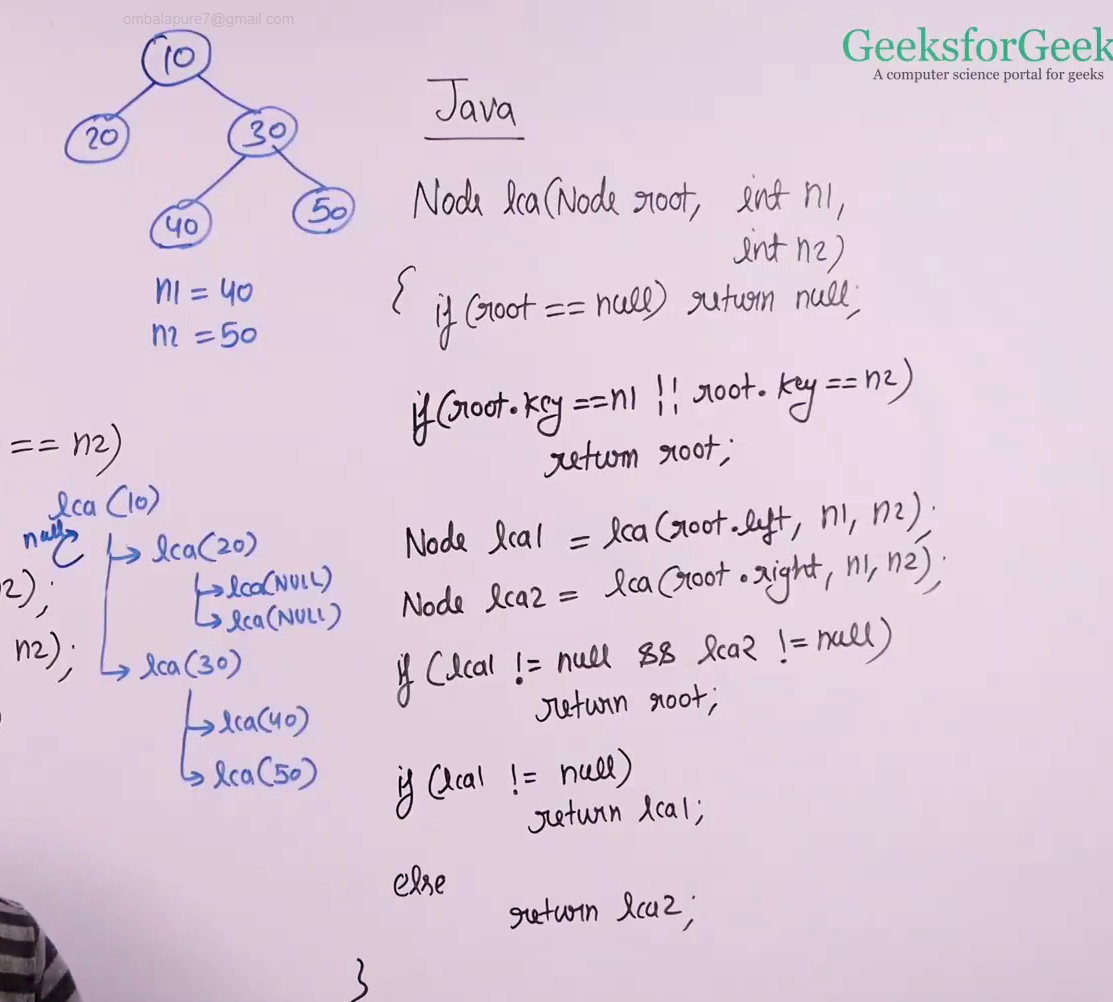 ombalapure7@gmail.com
GeeksforGeek
A computer science portal for geeks
10
20
30
40
50
n1 = 40
n2 = 50
== n2)
lca (10)
null
lca(20)
lca(NULL)
lca(NULL)
lca(30)
lca(40)
lca(50)
2);
n2);
Java
Node lca(Node root, int n1,
int n2)
{ if (root == null) return null;
if(root.key ==n1 || root.key == n2)
return root;
Node lca1 = lca(root.left, n1, n2);
Node lca2 = lca(root.right, n1, n2);
if (lca1 != null && lca2 != null)
return root;
if (lca1 != null)
return lca1;
else
return lca2;
}